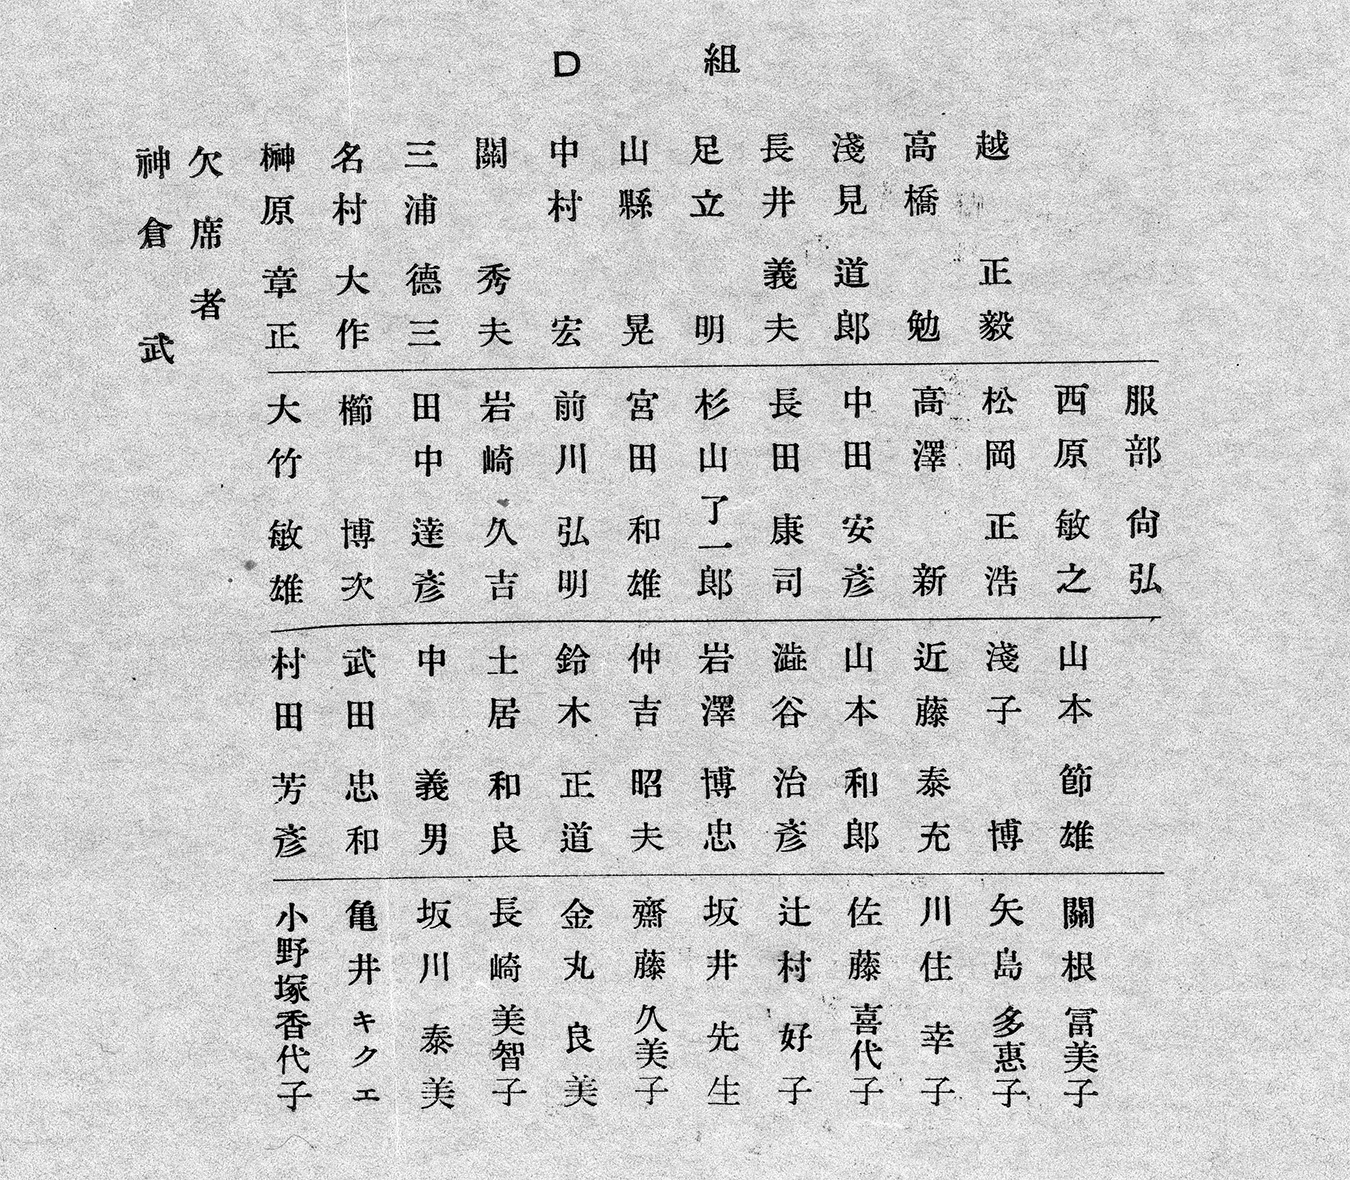 D 組
越 正毅
高橋 勉
淺見 道郎
長井 義夫
足立 明
山縣 晃
中村 宏
關 秀夫
三浦 德三
名村 大作
榊原 章正
欠席者
神倉 武
服部 尙弘
西原 敏之
松岡 正浩
高澤 新
中田 安彥
長田 康司
杉山 了一郎
宮田 和雄
前川 弘明
岩崎 久吉
田中 達彥
櫛 博次
大竹 敏雄
山本 節雄
淺子 博
近藤 泰充
山本 和郎
澁谷 治彥
岩澤 博忠
仲吉 昭夫
鈴木 正道
土居 和良
中 義男
武田 忠和
村田 芳彥
關根 冨美子
矢島 多惠子
川住 幸子
佐藤 喜代子
辻村 好子
坂井 先生
齋藤 久美子
金丸 良美
長崎 美智子
坂川 泰美
亀井 キクエ
小野塚 香代子